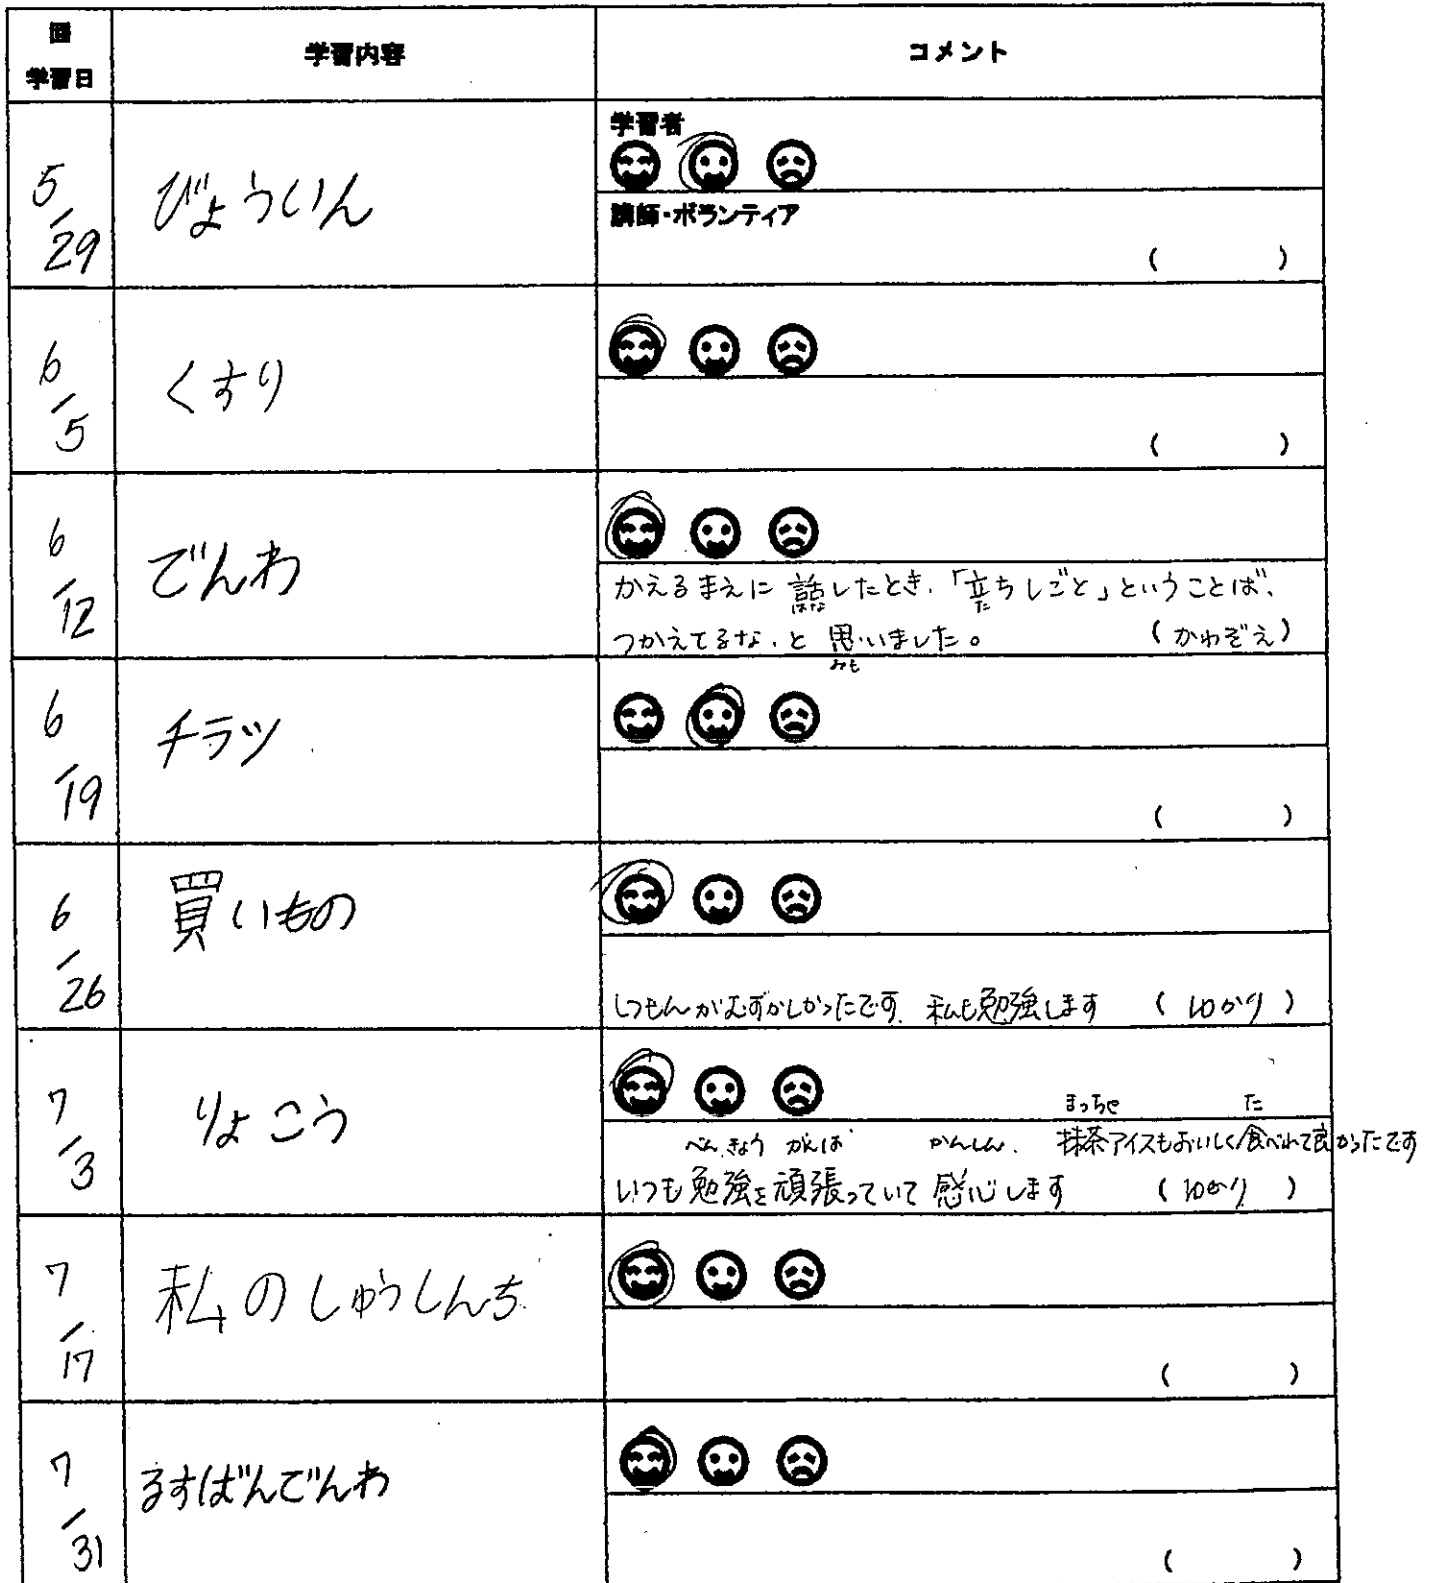 回
学習日
学習内容
コメント
5/29
びょういん
学習者
講師・ボランティア
( )
6/5
くすり
( )
6/12
でんわ
かえるまえに 話したとき、「立ちしごと」ということば、
はな
た
つかえてるな、と 思いました。 (かわぞえ)
みも
6/19
チラツ
( )
6/26
買いもの
しつもんがむずかしかったです。私も勉強します (ゆかり)
7/3
りょこう
まっちゃ た
べんきょう がんば かんしん. 抹茶アイスもおいしく食べれて良かったです
いつも勉強を頑張っていて感心します (ゆかり)
7/17
私のしゅうしんち
( )
7/31
るすばんでんわ
( )